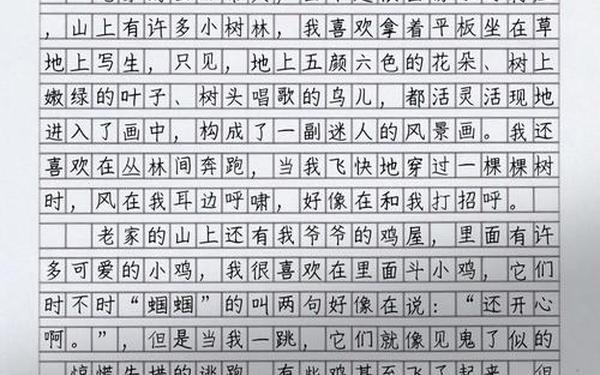 ，山上有许多小树林，我喜欢拿着平板坐在草
地上写生，只见，地上五颜六色的花朵、树上
嫩绿的叶子、树头唱歌的鸟儿，都活灵活现地
进入了画中，构成了一副迷人的风景画。我还
喜欢在丛林间奔跑，当我飞快地穿过一棵棵树
时，风在我耳边呼啸，好像在和我打招呼。
老家的山上还有我爷爷的鸡屋，里面有许
多可爱的小鸡，我很喜欢在里面斗小鸡，它们
时不时“蝈蝈”的叫两句好像在说：“还开心
啊。”，但是当我一跳，它们就像见鬼了似的
惊慌失措的逃跑，有些鸡甚至飞了起来，但